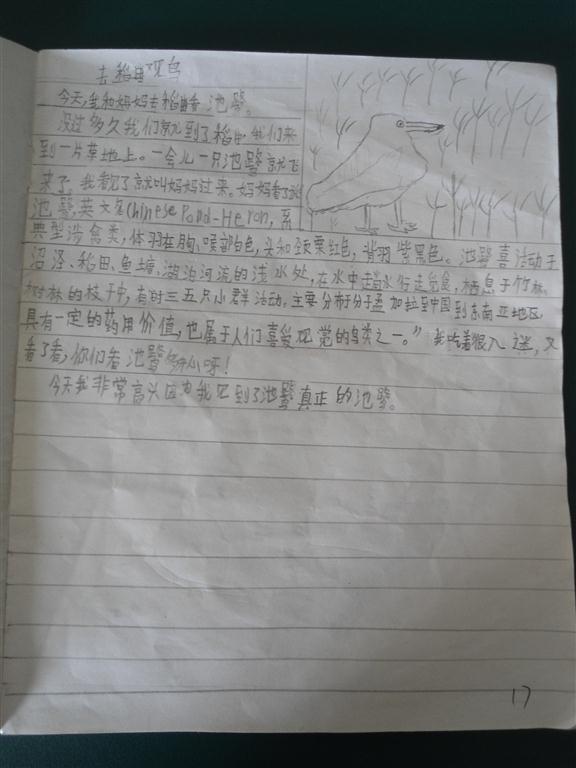 去稻田观鸟
今天,我和妈妈去稻田看池鹭。
没过多久我们就到了稻田,我们来
到一片草地上。一会儿一只池鹭就飞
来了。我看见了就叫妈妈过来。妈妈看了说
池鹭,英文名Chinese Pond-Heron,系
典型涉禽类,体羽在胸、喉部白色,头和颈栗红色,背羽紫黑色。池鹭喜活动于
沼泽、稻田、鱼塘、湖泊河流的浅水处,在水中趟水行走觅食,栖息于竹林、
树林的枝干中,有时三五只小群活动,主要分布于孟加拉至中国到东南亚地区,
具有一定的药用价值,也属于人们喜爱观赏的鸟类之一。”我听着很入迷,又
看了看,你们看池鹭多么呀!
今天我非常高兴因为我见到了池鹭真正的池鹭。
17